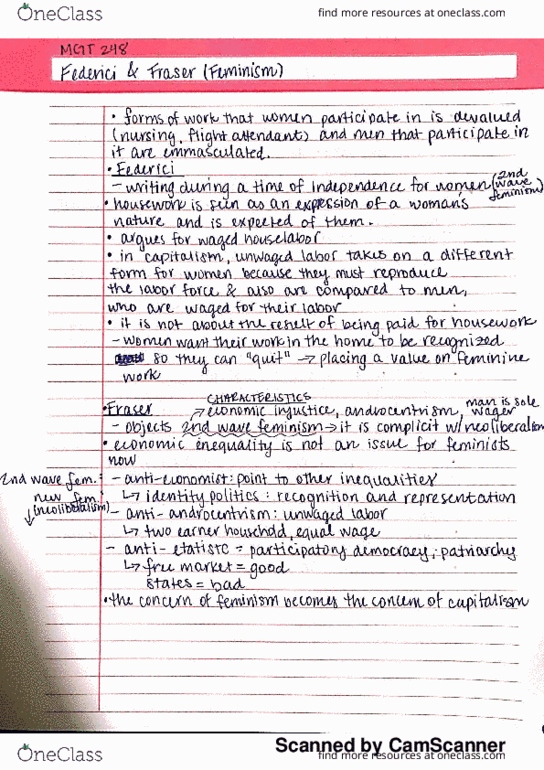 OneClass
find more resources at oneclass.com
MGT 248
Federici & Fraser (Feminism)
• forms of work that women participate in is devalued
(nursing, flight attendant) and men that participate in
it are emmasculated.
• Federici
– writing during a time of independence for women (2nd wave feminism)
• housework is seen as an expression of a woman's
nature and is expected of them.
• argues for waged houselabor
• in capitalism, unwaged labor takes on a different
form for women because they must reproduce
the labor force & also are compared to men,
who are waged for their labor
• it is not about the result of being paid for housework
– women want their work in the home to be recognized
so they can "quit" → placing a value on feminine
work
CHARACTERISTICS
• Fraser → economic injustice, androcentrism, man is sole wager
– objects 2nd wave feminism → it is complicit w/ neoliberalism
• economic inequality is not an issue for feminists
now
2nd wave fem. : – anti-economist: point to other inequalities
new fem. (neoliberalism) ↳ identity politics : recognition and representation
– anti-androcentrism: unwaged labor
↳ two earner household, equal wage
– anti-etatiste = participatory democracy, patriarchy
↳ free market = good
states = bad
• the concern of feminism becomes the concern of capitalism
Scanned by CamScanner
OneClass
find more resources at oneclass.com